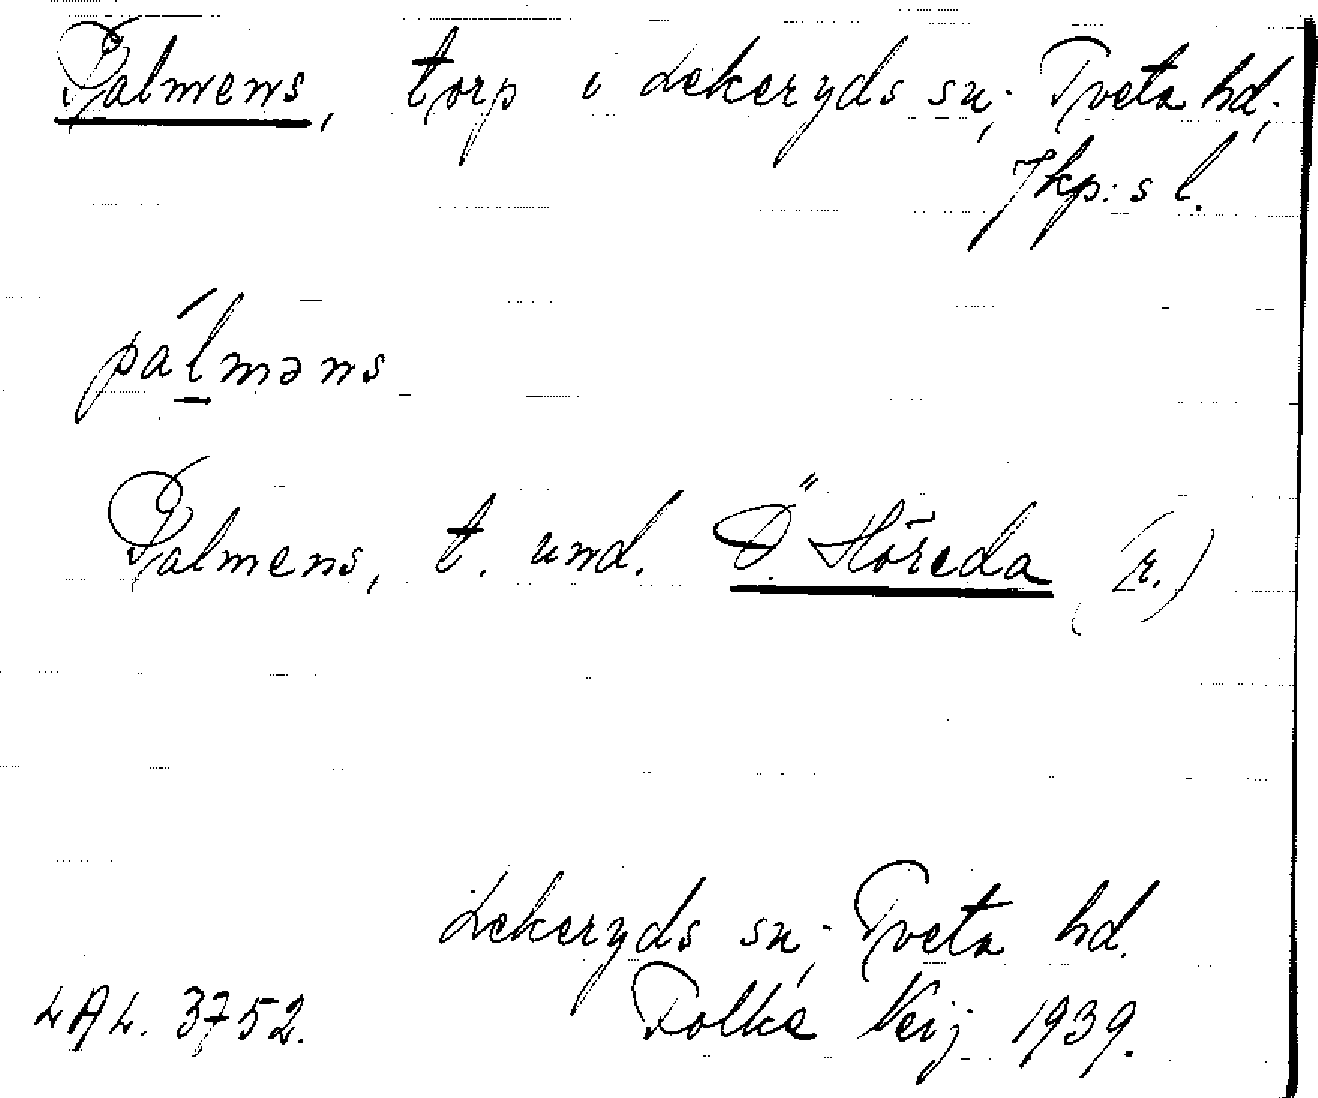 Palmens, torp i Lekeryds sn; Tveta hd;
Jkp:s l.
pálməns
Palmens, t. und. Ö. Höreda (r.)
Lekeryds sn; Tveta hd.
LAL. 3752. Folke Neij 1939.